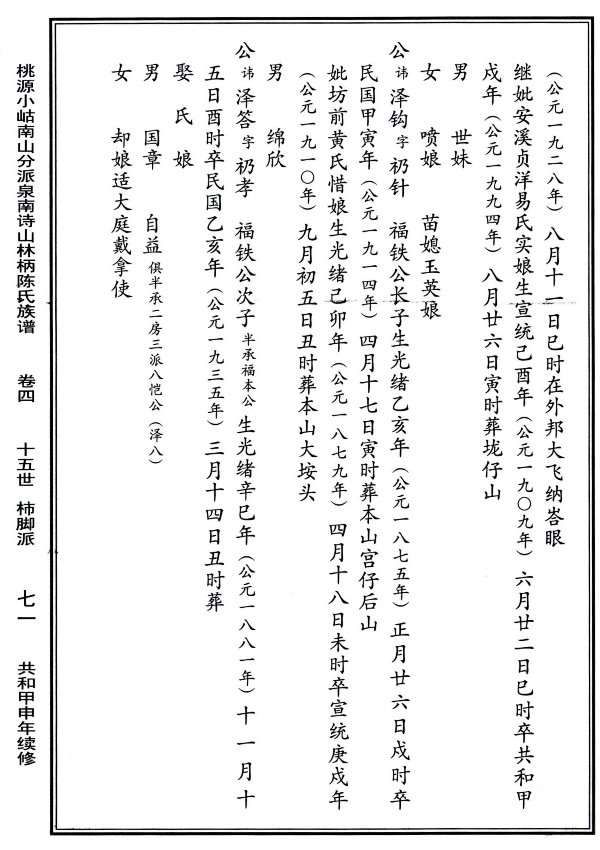 （公元一九二八年）八月十一日巳时在外邦大飞纳峇眼
继妣安溪贞洋易氏实娘生宣统己酉年（公元一九〇九年）六月廿二日巳时卒共和甲
戌年（公元一九九四年）八月廿六日寅时葬垅仔山
男　世妹
女　喷娘　苗媳玉英娘
公讳泽钩字礽针　福铁公长子生光绪乙亥年（公元一八七五年）正月廿六日戌时卒
民国甲寅年（公元一九一四年）四月十七日寅时葬本山宫仔后山
妣坊前黄氏惜娘生光绪己卯年（公元一八七九年）四月十八日未时卒宣统庚戌年
（公元一九一〇年）九月初五日丑时葬本山大垵头
男　绵欣
公讳泽答字礽孝　福铁公次子半承福本公生光绪辛巳年（公元一八八一年）十一月十
五日酉时卒民国乙亥年（公元一九三五年）三月十四日丑时葬
娶氏娘
男　国章　自益俱半承二房三派八恺公（泽八）
女　却娘适大庭戴拿使
桃源小岵南山分派泉南诗山林柄陈氏族谱　卷四　十五世　柿脚派　七一　共和甲申年续修